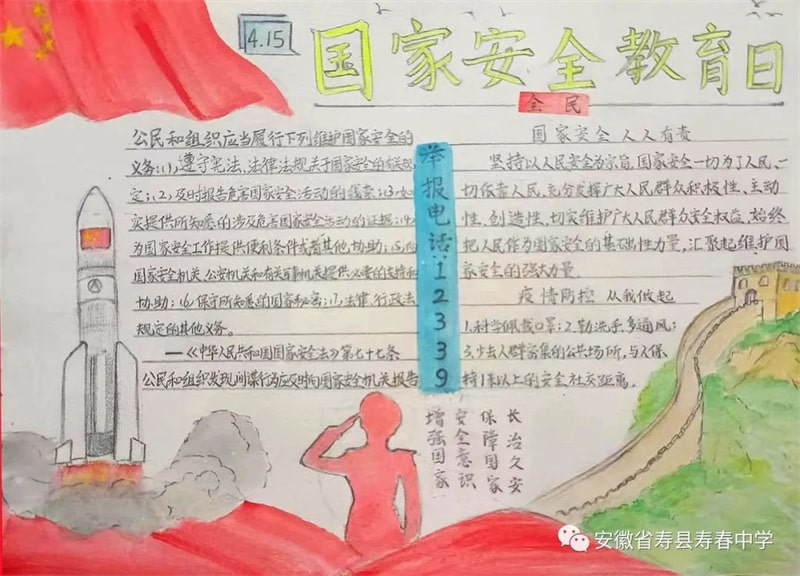 4.15
国家安全教育日
全民
公民和组织应当履行下列维护国家安全的
义务:(1),遵守宪法、法律法规关于国家安全的有关规
定;(2),及时报告危害国家安全活动的线索;(3)如
实提供所知悉的涉及危害国家安全活动的证据;(4)
为国家安全工作提供便利条件或者其他协助;(5),向
国家安全机关、公安机关和有关军事机关提供必要的支持和
协助;(6)保守所知悉的国家秘密;(7),法律、行政法
规定的其他义务。
——《中华人民共和国国家安全法》第七十七条
公民和组织发现间谍行为应及时向国家安全机关报告
举报电话:12339
国家安全 人人有责
坚持以人民安全为宗旨,国家安全一切为了人民、一
切依靠人民,充分发挥广大人民群众积极性、主动
性、创造性,切实维护广大人民群众安全权益,始终
把人民作为国家安全的基础性力量,汇聚起维护国
家安全的强大力量
疫情防控 从我做起
1.科学佩戴口罩;2.勤洗手,多通风;
3.少去人群密集的公共场所,与人保
持1米以上的安全社交距离。
增强国家
安全意识
保障国家
长治久安
安徽省寿县寿春中学